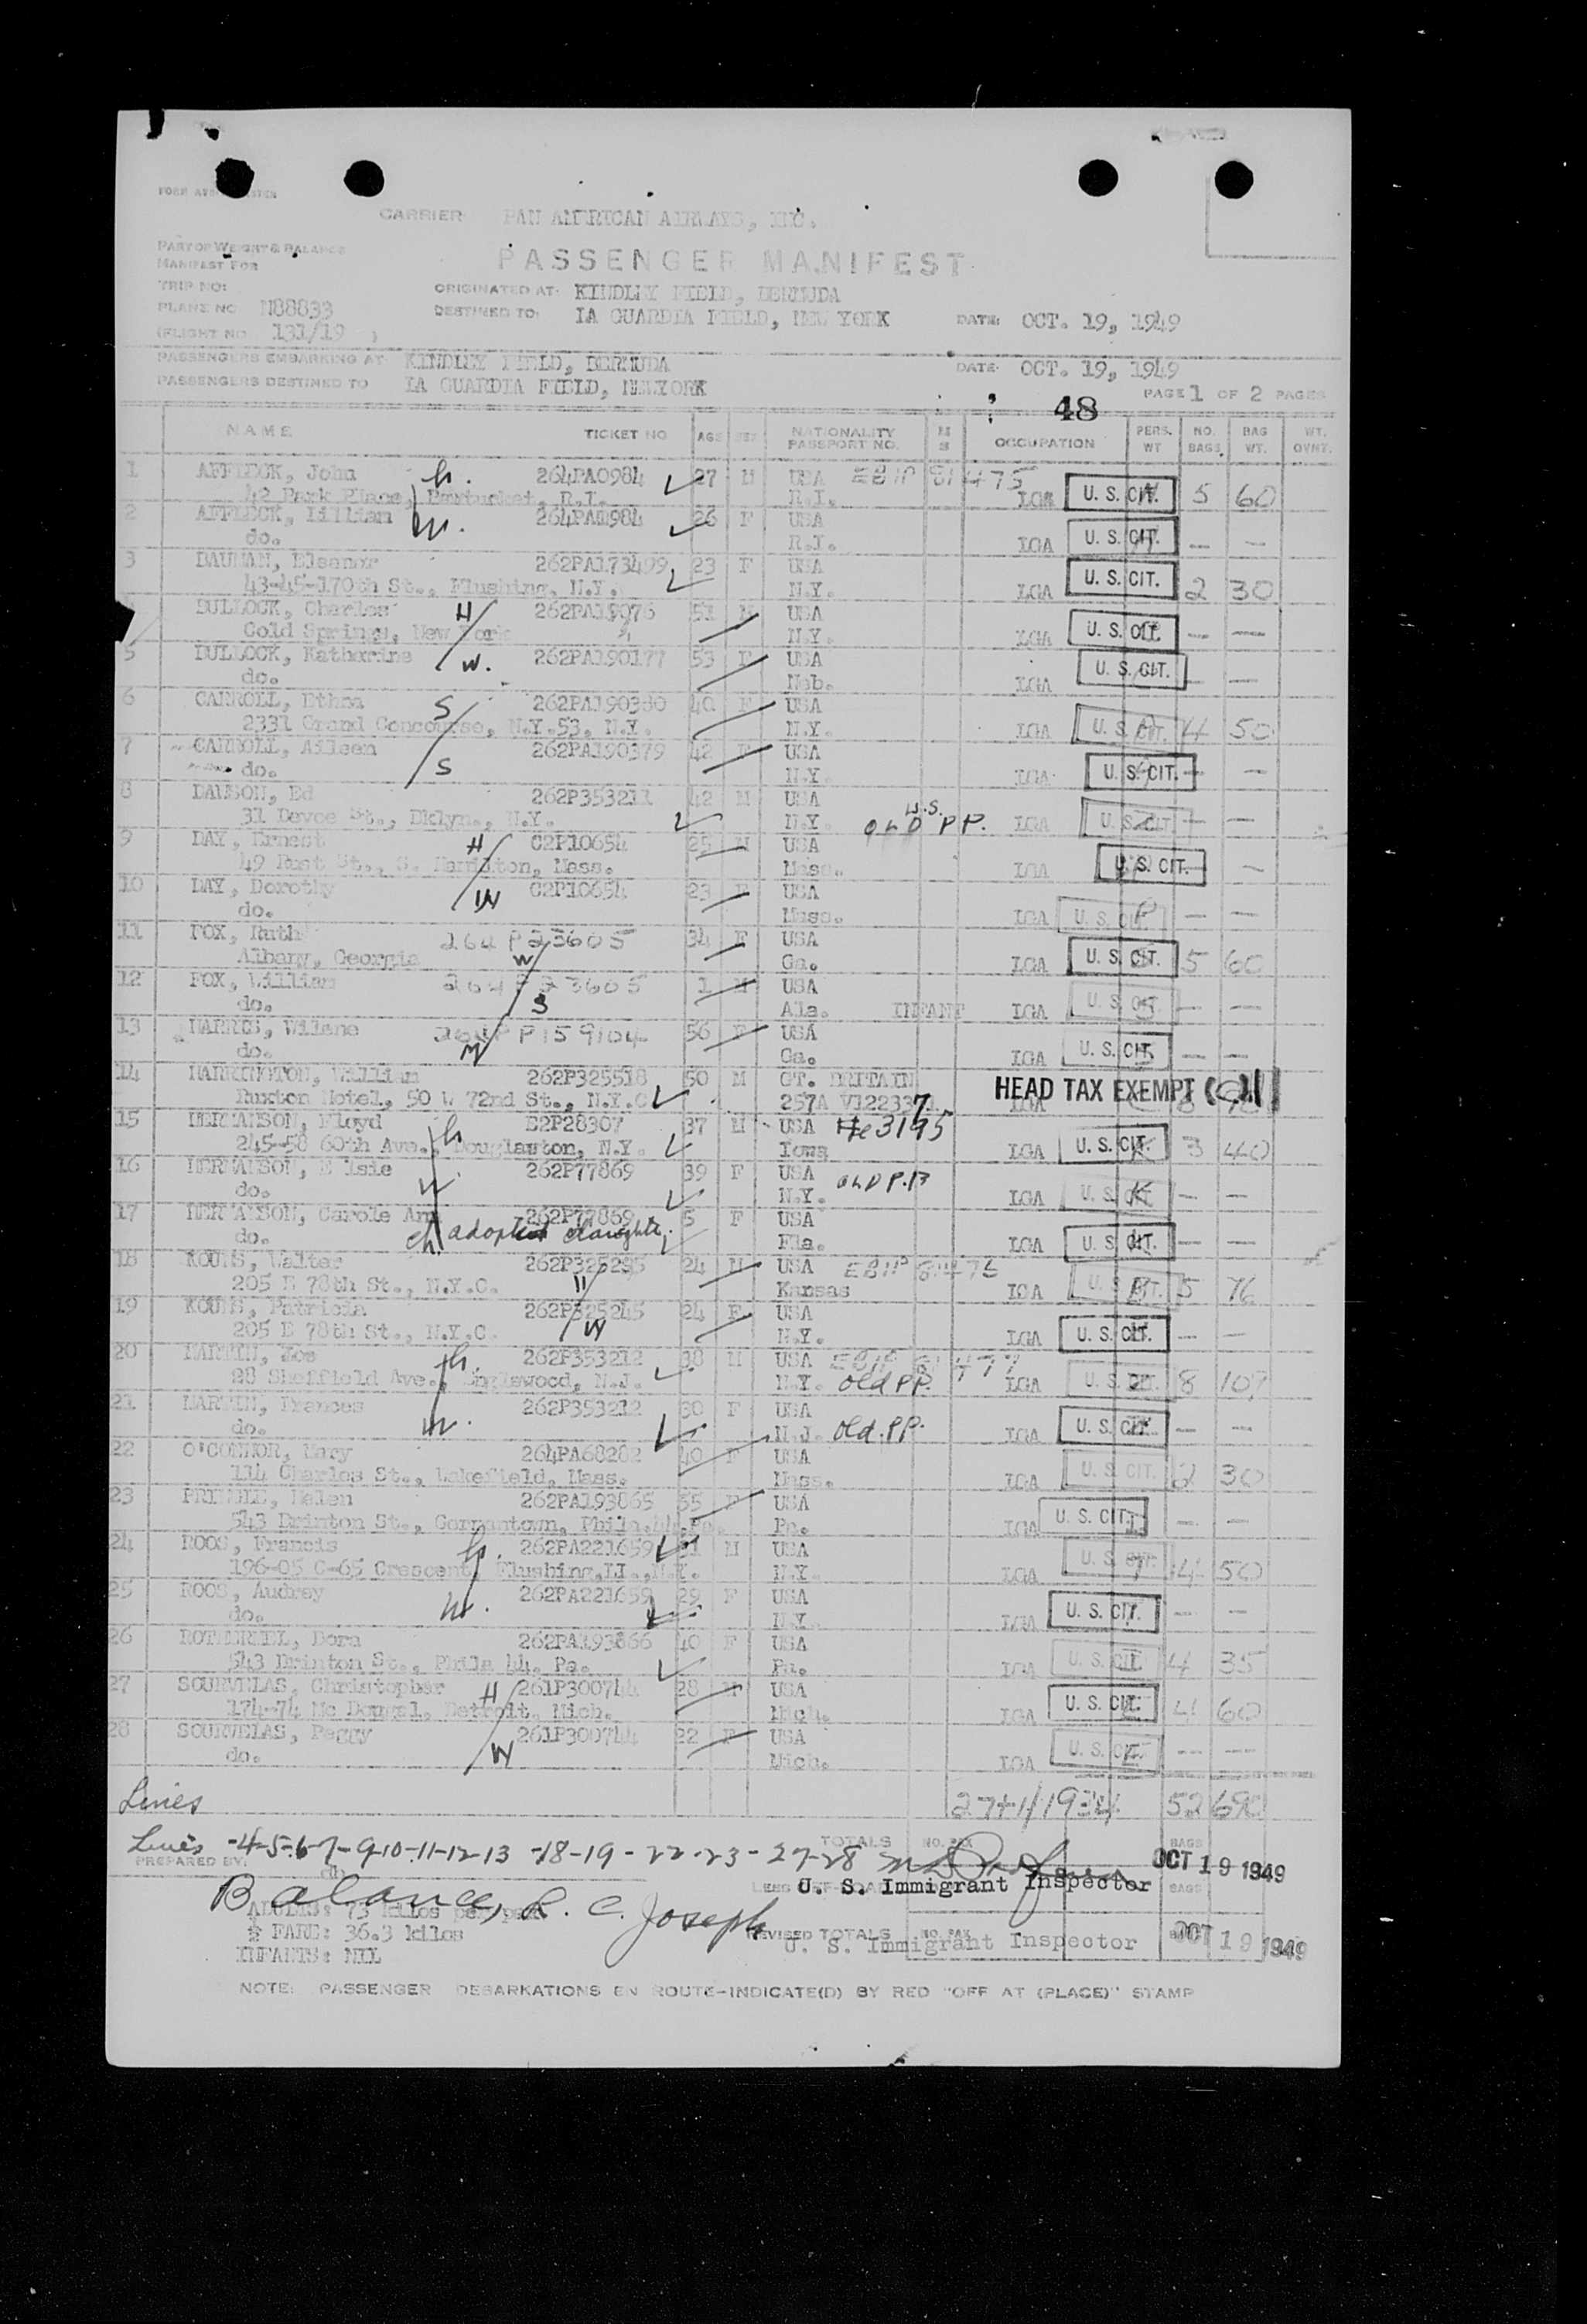 CARRIER PAN AMERICAN AIRWAYS, INC.
PART OF WEIGHT & BALANCE
MANIFEST FOR
PASSENGER MANIFEST
TRIP NO:
ORIGINATED AT: KINDLEY FIELD, BERMUDA
PLANE NO N88833
DESTINED TO: LA GUARDIA FIELD, NEW YORK DATE: OCT. 19, 1949
(FLIGHT NO 131/19 )
PASSENGERS EMBARKING AT KINDLEY FIELD, BERMUDA DATE: OCT. 19, 1949
PASSENGERS DESTINED TO LA GUARDIA FIELD, NEWYORK
PAGE 1 OF 2 PAGES
48
NAME TICKET NO AGE SEX NATIONALITY PASSPORT NO. M S OCCUPATION PERS. WT NO. BAGS BAG WT. WT. OVNT.
1 AFFLECK, John h. 264PA0984 27 M USA LGA U. S. CIT. 5 60
42 Park Place, Pawtucket, R.I. R.I.
2 AFFLECK, Lillian w. 26 F USA LGA U. S. CIT. — —
do. R.I.
3 BAUMAN, Eleanor 262PA173499 23 F USA LGA U. S. CIT. 2 30
43-45-170th St., Flushing, N.Y. N.Y.
BULLOCK, Charles H 51 M USA LGA U. S. CIT. — —
Cold Springs, New York N.Y.
5 BULLOCK, Katharine W. 262PA190177 53 F USA LGA U. S. CIT. — —
do. Neb.
6 CARROLL, S 262PA190380 40 F USA LGA U. S. CIT. 4 50
2331 Grand Concourse, N.Y.53, N.Y. N.Y.
7 CARROLL, Aileen S 262PA190379 42 F USA LGA U. S. CIT. — —
do. N.Y.
8 DAWSON, Ed 262P353211 42 M USA LGA U. S. CIT. — —
31 Devoe St., Bklyn., N.Y. N.Y. OLD U.S. PP.
9 DAY, Ernest H C2P10654 25 M USA LGA U. S. CIT. —
49 St., S. Hamilton, Mass. Mass.
10 DAY, Dorothy W C2P10654 23 F USA LGA U. S. CIT. — —
do. Mass.
11 FOX, Ruth W 264P23605 34 F USA LGA U. S. CIT. 5 60
Albany, Georgia Ga.
12 FOX, William S 264P23605 1 M USA LGA U. S. CIT. — —
do. Ala. INFANT
13 Wilene M 56 F USA LGA U. S. CIT. — —
do. Ga.
14 HARRINGTON, William 262P325518 50 M GT. BRITAIN HEAD TAX EXEMPT
Ruxton Hotel, 50 W 72nd St., N.Y.C 257A LGA
15 HERMANSON, Floyd h 37 M USA LGA U. S. CIT. 3 40
245-58 60th Ave., Douglaston, N.Y. Iowa
16 HERMANSON, Elsie W 262P77869 39 F USA OLD P.P. LGA U. S. CIT. — —
do. N.Y.
17 HERMANSON, Carole Ann 262P77869 5 F USA LGA U. S. CIT. — —
do. ch adopted daughter Fla.
18 KOUNS, Walter H 24 M USA LGA U. S. CIT. 5 76
205 E 78th St., N.Y.C. Kansas
19 KOUNS, Patricia W 262P325245 24 F USA LGA U. S. CIT. — —
205 E 78th St., N.Y.C. N.Y.
20 MARTIN, h. 262P353212 38 M USA LGA U. S. CIT. 8 107
28 Sheffield Ave., Englewood, N.J. N.Y. old PP.
21 MARTIN, Frances W. 262P353212 30 F USA LGA U. S. CIT. — —
do. N.J. old. PP.
22 O'CONNOR, Mary 264PA68282 40 F USA LGA U. S. CIT. 2 30
114 Charles St., Wakefield, Mass. Mass.
23 Helen 262PA193865 55 F USA LGA U. S. CIT. — —
543 Brinton St., Germantown, Phila. Pa.
24 ROOS, Francis h. 262PA221659 31 M USA LGA U. S. CIT. 4 50
196-05 C-65 Crescent, Flushing, LI., N.Y. N.Y.
25 ROOS, Audrey W. 262PA221659 29 F USA LGA U. S. CIT. — —
do. N.Y.
26 ROTHERMEL, Dora 262PA193866 40 F USA LGA U. S. CIT. 4 35
543 Brinton St., Phila 44, Pa. Pa.
27 SOURVELAS, Christopher H 261P300744 28 M USA LGA U. S. CIT. 4 60
Detroit, Mich. Mich.
28 SOURVELAS, Peggy W 261P300744 22 F USA LGA U. S. CIT. — —
do. Mich.
Lines 27+1 52 690
Lines -4-5-6-7-9-10-11-12-13-18-19-22-23-27-28 TOTALS NO. PAX BAGS
PREPARED BY: OCT 19 1949
U. S. Immigrant Inspector
Balance, R. C. Joseph
ADULTS: 73 kilos per
½ FARE: 36.3 kilos REVISED TOTALS NO. PAX
U. S. Immigrant Inspector OCT 19 1949
INFANTS: NIL
NOTE: PASSENGER DEBARKATIONS EN ROUTE-INDICATE(D) BY RED "OFF AT (PLACE)" STAMP